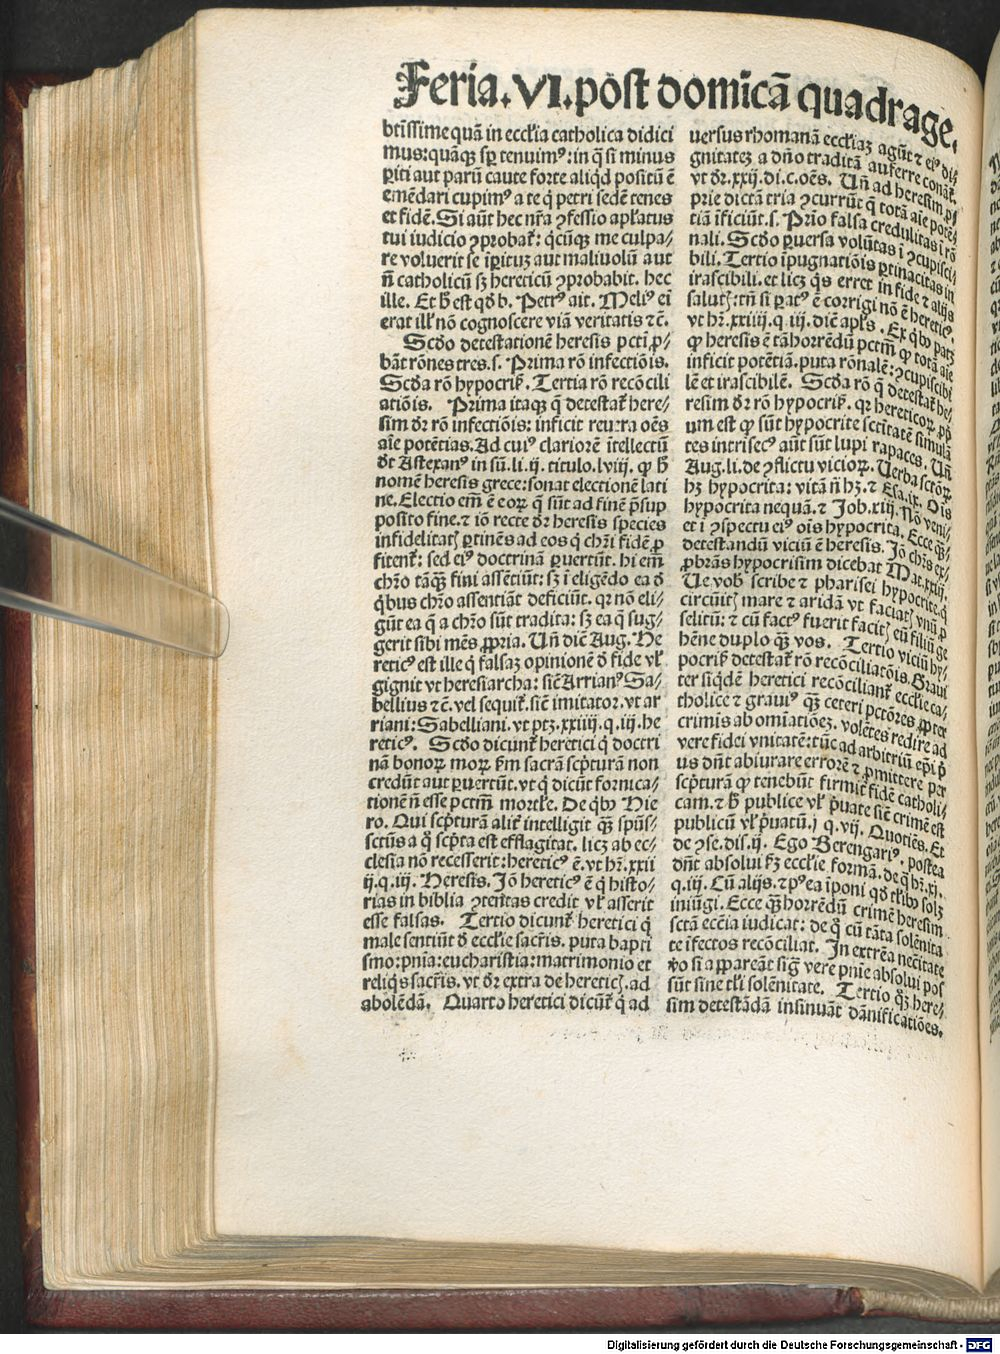 Feria.VI.post domicā quadrage.
btissime quā in eccłia catholica didici
mus: quāqȝ sꝑ tenuimꝰ: in q̄ si minus
ꝑiti aut parū caute forte aliqd positū ē
emēdari cupimꝰ a te q̇ petri sedē tenes
et fidē. Si aūt hec nr̄a ꝯfessio apłatus
tui iudicio ꝯprobat̄: q̇cūqȝ me culpa⸗
re voluerit se īꝑituȝ aut maliuolū aut
n̄ catholicū sȝ hereticū ꝯprobabit. hec
ille. Et h̄ est qd̄ b. Petrꝰ ait. Meliꝰ ei
erat illꝭ nō cognoscere viā veritatis ⁊c̄.
Scd̄o detestationē heresis pcti ꝓ⸗
bāt rōnes tres. s. Prima rō infectiōis.
Scd̄a rō hypocrisꝭ. Tertia rō recōcili
atiōis. Prima itaqȝ q̄ detestat̄ here⸗
sim dr̄ rō infectiōis: inficit reuera oēs
aīe potētias. Ad cuiꝰ clariorē ītellectū
dt̄ Astexanꝰ in sū. li. ij. titulo. lviij. ꝙ h̄
nomē heresis grece: sonat electionē lati
ne. Electio em̄ ē eoꝝ q̄ sūt ad finē p̄sup
posito fine. ⁊ iō recte dr̄ heresis species
infidelitatꝭ ꝑtinēs ad eos q̇ chr̄i fidē ꝓ
fitent̄: sed eiꝰ doctrinā ꝑuertūt. hi em̄
chr̄o tāqȝ fini assētiūt: sȝ ī eligēdo ea d̄
q̇bus chr̄o assentiāt deficiūt. qꝛ nō eli⸗
gūt ea q̄ a chr̄o sūt tradita: sȝ ea q̄ sug⸗
gerit sibi mēs ꝓpria. Un̄ dic̄ Aug. He
reticꝰ est ille q̇ falsaȝ opinionē d̄ fide vł
gignit vt heresiarcha: sic̄ Arrianꝰ Sa⸗
bellius ⁊c̄. vel sequit̄. sic̄ imitator. vt ar
riani: Sabelliani. vt ptȝ. xxiiij. q. iij. he
reticꝰ. Scd̄o dicunt̄ heretici q̇ doctri
nā bonoꝝ moꝝ fm̄ sacrā scp̄turā non
credūt aut ꝑuertūt. vt q̇ dicūt fornica⸗
tionē n̄ esse pctm̄ mortłe. De q̇bꝰ Hie
ro. Qui scp̄turā alit̄ intelligit qȝ̄ spūs⸗
sctūs a q̊ scp̄ta est efflagitat. licȝ ab ec⸗
clesia nō recesserit: hereticꝰ ē. vt hr̄. xxii
ij. q. iij. Heresis. Jō hereticꝰ ē q̇ histo⸗
rias in biblia ꝯtentas credit vł asserit
esse falsas. Tertio dicunt̄ heretici q̇
male sentiūt d̄ eccłie sacr̄is. puta bapti
smo: pnīa: eucharistia: matrimonio et
reliq̇s sacr̄is. vt dr̄ extra de hereticꝭ. ad
abolēdā. Quarto heretici dicūt̄ q̇ ad
uersus rhomanā eccłiaȝ agūt ⁊ eiꝰ di⸗
gnitateȝ a dn̄o traditā auferre conāt̄.
vt dr̄. xxij. di. c. oēs. Un̄ ad heresim ꝓ⸗
prie dictā tria ꝯcurrūt q̄ totā aīe potē⸗
tiā īficiūt. s. Prīo falsa credulitas ī rō
nali. Scd̄o ꝑuersa volūtas ī ꝯcupisci⸗
bili. Tertio īpugnatiōis ꝑtinacitas in
irascibili. et licȝ q̇s erret in fide ⁊ alijs
salutꝭ: tn̄ si ꝑatꝰ ē corrigi nō ē hereticꝰ
vt hr̄. xxiiij. q. iij. dic̄ apłs. Ex q̇bꝰ patȝ
ꝙ heresis ē tā horrēdū pctm̄ ꝙ totā aīe
inficit potētiā. puta rōnalē: ꝯcupiscibi
lē et irascibilē. Scd̄a rō q̄ detestat̄ he⸗
resim dr̄ rō hypocrisꝭ. qꝛ hereticoꝝ ꝓp̄
um est ꝙ sūt hypocrite sctītatē simulā
tes intrisecꝰ aūt sūt lupi rapaces. Un̄
Aug. li. de ꝯflictu vicioꝝ. Uerba sctōꝝ
hȝ hypocrita: vitā n̄ hȝ. ⁊ Esa. ix. Oīs
hypocrita nequā. ⁊ Job. xiij. Nō veni⸗
et ī ꝯspectu eiꝰ oīs hypocrita. Ecce qȝ̄⸗
detestandū viciū ē heresis. Jō chr̄s ex⸗
ꝓbrās hypocrisim dicebat Mat. xxiij.
Ue vob̄ scribe ⁊ pharisei hypocrite. q̇
circūitꝭ mare ⁊ aridā vt faciatꝭ vnū ꝓ
selitū: ⁊ cū factꝰ fuerit facitꝭ eū filiū ge
hēne duplo qȝ̄ vos. Tertio viciū hy⸗
pocrisꝭ detestat̄ rō recōciliatōis. Graui
ter siqdē heretici recōciliant̄ eccłie ca⸗
tholice ⁊ grauiꝰ qȝ̄ ceteri pctōres ꝓpter
crimis abomiatiōeȝ. volētes redire ad
vere fidei vnitatē: tūc ad arbitriū ep̄i p̄
us dn̄t abiurare errorē ⁊ ꝓmittere per
scp̄turā ꝙ tenebūt firmit̄ fidē catholi⸗
cam. ⁊ h̄ publice vł p̄uate sic̄ crimē est
publicū vł p̄uatū. j q. vij. Quotiēs. Et
de ꝯse. dis. ij. Ego Berengariꝰ. postea
dn̄t absolui fȝ eccłie formā. de q̇ hr̄. xj.
q. iij. Cū alijs. ⁊ pꝰea īponi qd̄ tłibꝰ solȝ
iniūgi. Ecce qȝ̄ horrēdū crimē heresim
sctā eccīa iudicat: de q̊ cū tāta solēnita
te īfectos recōciliat. In extrēa necītate
v̊o si appareāt sig vere pnīe absolui pos
sūt sine tłi solēnitate. Tertio qȝ̊ here⸗
sim detestādā insinuāt dānificatiōes.
Digitalisierung gefördert durch die Deutsche Forschungsgemeinschaft - DFG